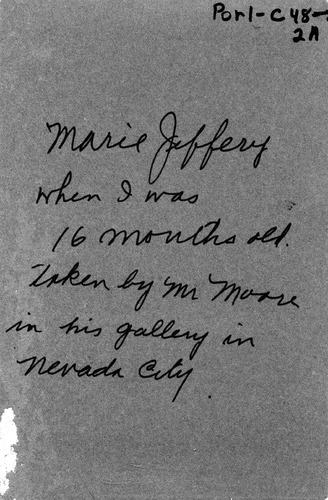 Porl-C48-
2A
Marie Jeffery
when I was
16 months old.
Taken by Mr Moore
in his gallery in
Nevada City.